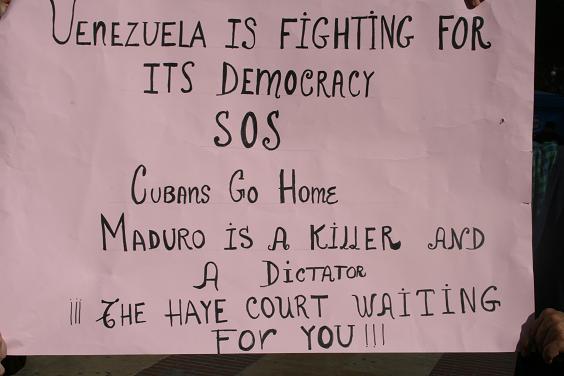 VENEZUELA IS FiGHTiNG FOR
ITS DEMOCRACY
SOS
CUBANS GO HOME
MADURO iS A KiLLER AND
A DiCTATOR
¡¡¡ THE HAYE COURT WAiTiNG
FOR YOU!!!